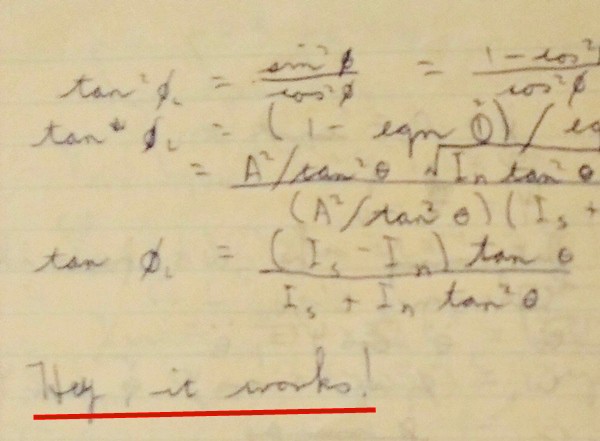 tan² φ꜀ = sin² φ / cos² φ = 1 - cos² / cos² φ
tan² φ꜀ = (1 - eqn ①) /
= A²/tan² θ √ Iₙ tan² θ / (A²/tan² θ) (Iₛ +
tan φ꜀ = (Iₛ - Iₙ) tan θ / Iₛ + Iₙ tan² θ
Hey, it works!